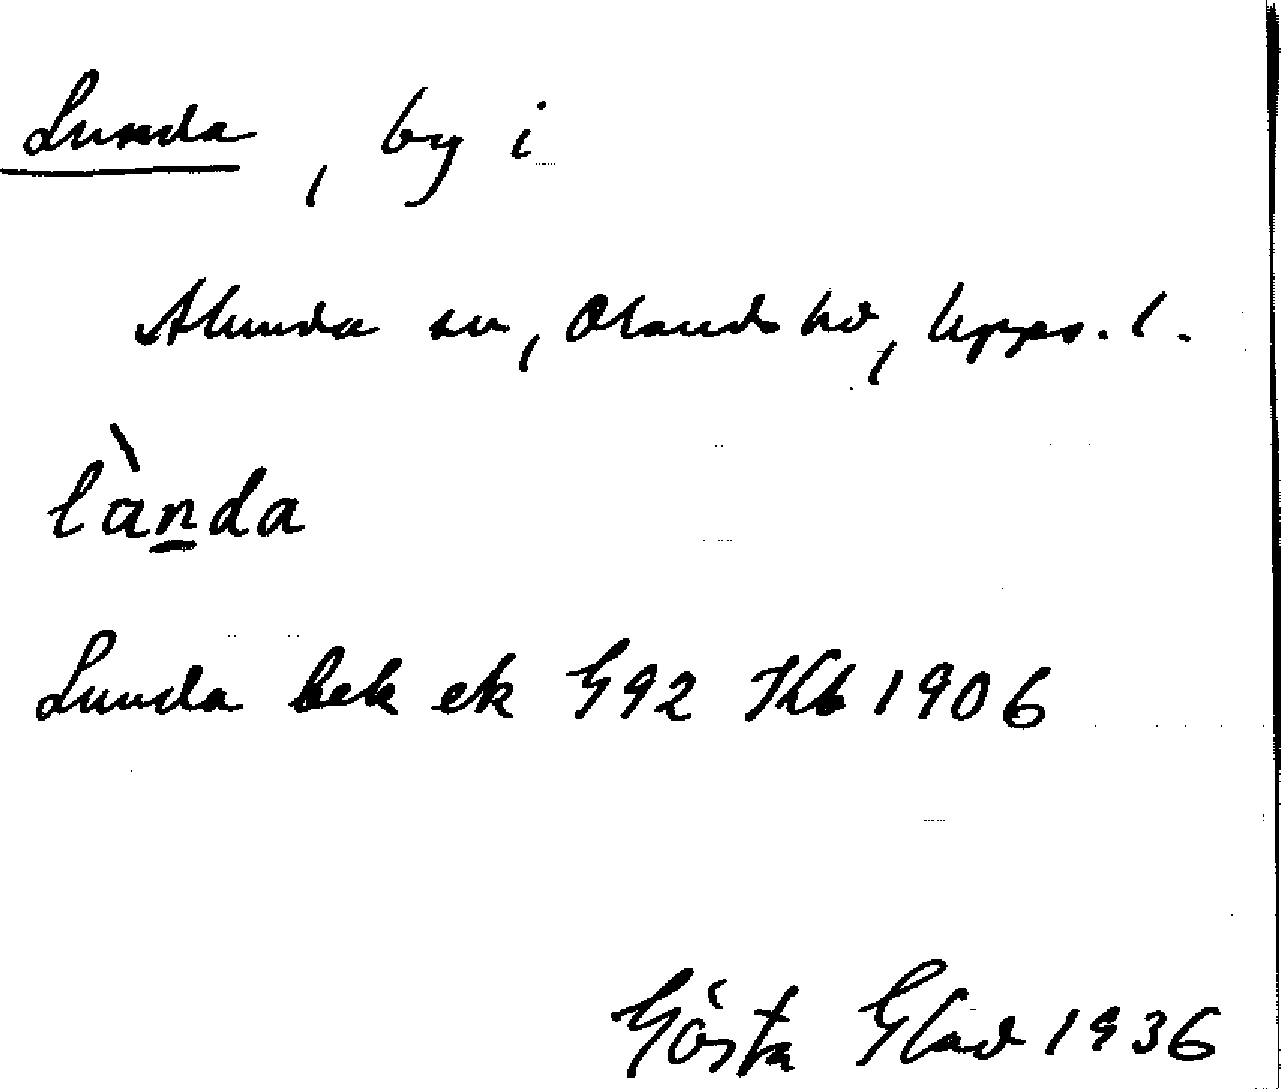 Lunda, by i
Alunda sn, Olands hd, Upps. l.
lànda
Lunda bek ek G92 Kb 1906
Gösta Glad 1936